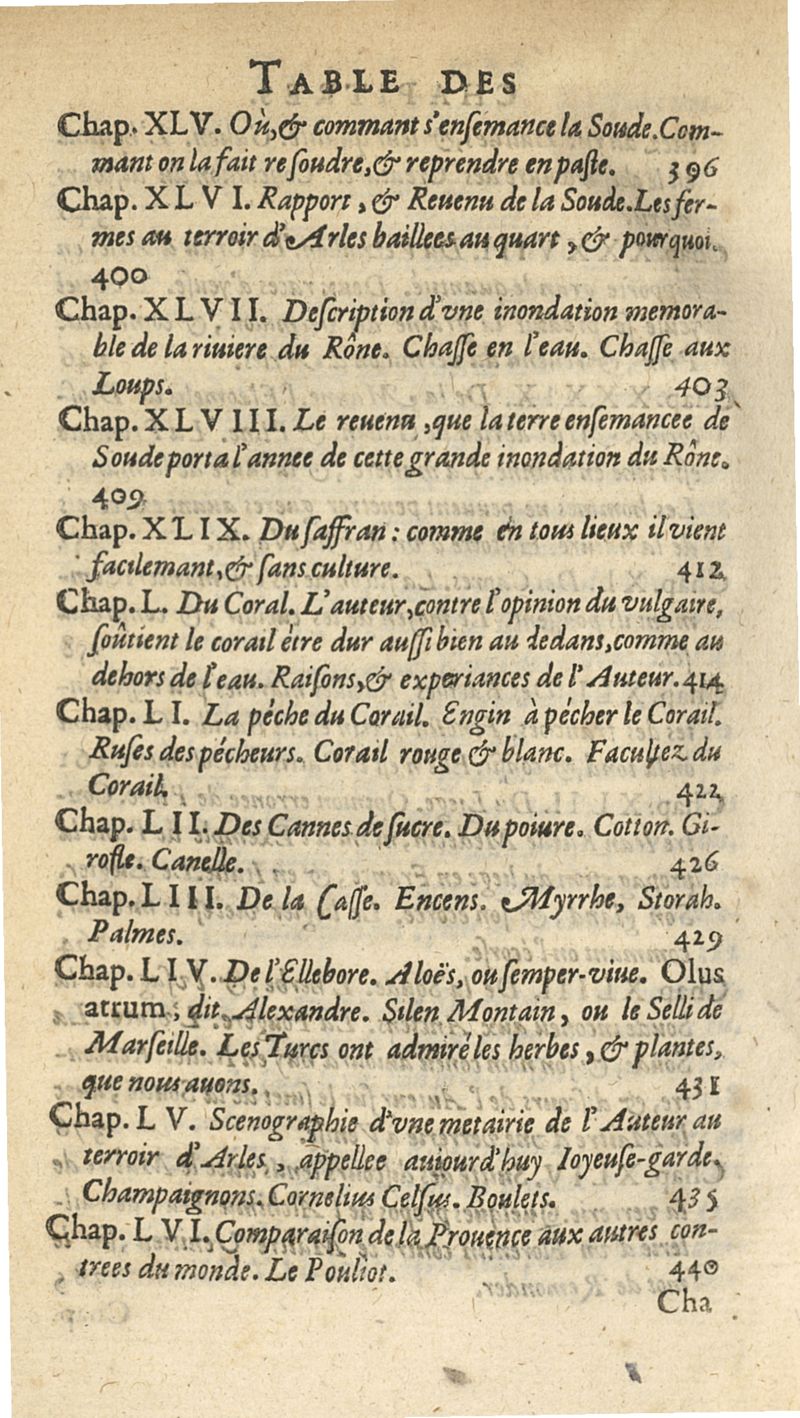 TABLE DES
Chap. XLV. Où, & commant s'ensemance la Soude. Com-
mant on la fait resoudre, & reprendre en paste. 396
Chap. XLVI. Rapport, & Reuenu de la Soude. Les fer-
mes au terroir d'Arles baillees au quart, & pourquoi.
400
Chap. XLVII. Description d'vne inondation memora-
ble de la riuiere du Rône. Chasse en l'eau. Chasse aux
Loups. 403
Chap. XLVIII. Le reuenu, que la terre ensemancee de
Soude porta l'annee de cette grande inondation du Rône.
409
Chap. XLIX. Du saffran : comme en tous lieux il vient
facilemant, & sans culture. 412
Chap. L. Du Coral. L'auteur, contre l'opinion du vulgaire,
soûtient le corail être dur aussi bien au dedans, comme au
dehors de l'eau. Raisons, & experiances de l'Auteur. 414
Chap. LI. La péche du Corail. Engin à pécher le Corail.
Ruses des pécheurs. Corail rouge & blanc. Facultez du
Corail. 422
Chap. LII. Des Cannes de sucre. Du poiure. Cotton. Gi-
rofle. Canelle. 426
Chap. LIII. De la Casse. Encens. Myrrhe, Storah.
Palmes. 429
Chap. LIV. De l'Ellebore. Aloës, ou semper-viue. Olus
atrum, dit Alexandre. Silen Montain, ou leSelli de
Marseille. Les Turcs ont admiré les herbes, & plantes,
que nous auons. 431
Chap. LV. Scenographie d'vne metairie de l'Auteur au
terroir d'Arles, appellee auiourd'huy Ioyeuse-garde.
Champaignons. Cornelius Celsus. Boulets. 435
Chap. LVI. Comparaison de la Prouence aux autres con-
trees du monde. Le Pouliot. 440
Cha